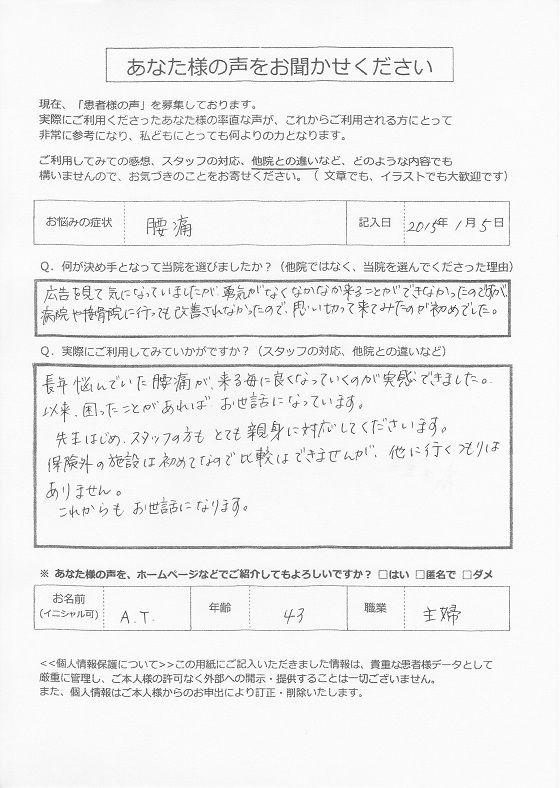 あなた様の声をお聞かせください
現在、「患者様の声」を募集しております。
実際にご利用くださったあなた様の率直な声が、これからご利用される方にとって
非常に参考になり、私どもにとっても何よりの力となります。
ご利用してみての感想、スタッフの対応、他院との違いなど、どのような内容でも
構いませんので、お気づきのことをお寄せください。（ 文章でも、イラストでも大歓迎です）
お悩みの症状 腰痛 記入日 2015年 1月 5日
Q．何が決め手となって当院を選びましたか？（他院ではなく、当院を選んでくださった理由）
広告を見て気になっていましたが、勇気がなくなかなか来ることができなかったのですが、
病院や接骨院に行っても改善されなかったので、思い切って来てみたのが初めでした。
Q．実際にご利用してみていかがですか？（スタッフの対応、他院との違いなど）
長年悩んでいた腰痛が、来る毎に良くなっていくのが実感できました。
以来、困ったことがあればお世話になっています。
先生はじめ、スタッフの方もとても親身に対応してくださいます。
保険外の施設は初めてなので比較はできませんが、他に行くつもりは
ありません。
これからもお世話になります。
※ あなた様の声を、ホームページなどでご紹介してもよろしいですか？ □はい □匿名で □ダメ
お名前
(イニシャル可) A.T. 年齢 43 職業 主婦
<<個人情報保護について>>この用紙にご記入いただきました情報は、貴重な患者様データとして
厳重に管理し、ご本人様の許可なく外部への開示・提供することは一切ございません。
また、個人情報はご本人様からのお申出により訂正・削除いたします。